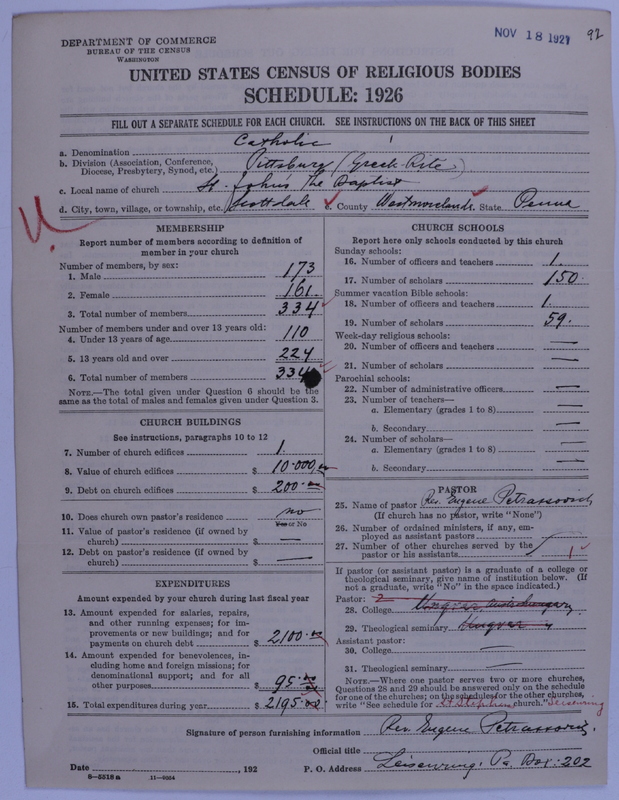 NOV 18 1927 92
DEPARTMENT OF COMMERCE
BUREAU OF THE CENSUS
WASHINGTON
UNITED STATES CENSUS OF RELIGIOUS BODIES
SCHEDULE: 1926
FILL OUT A SEPARATE SCHEDULE FOR EACH CHURCH. SEE INSTRUCTIONS ON THE BACK OF THIS SHEET
a. Denomination Catholic
b. Division (Association, Conference, Diocese, Presbytery, Synod, etc.) Pittsburg (Greek-Rite)
c. Local name of church St. John's The Baptist
d. City, town, village, or township, etc. Scottdale e. County Westmoreland State Penna
MEMBERSHIP
Report number of members according to definition of
member in your church
Number of members, by sex:
1. Male 173
2. Female 161.
3. Total number of members 334
Number of members under and over 13 years old:
4. Under 13 years of age 110
5. 13 years old and over 224
6. Total number of members 334
NOTE.—The total given under Question 6 should be the
same as the total of males and females given under Question 3.
CHURCH BUILDINGS
See instructions, paragraphs 10 to 12
7. Number of church edifices 1.
8. Value of church edifices $ 10.000,00
9. Debt on church edifices $ 200.00
10. Does church own pastor's residence no
Yes or No
11. Value of pastor's residence (if owned by
church) $ —
12. Debt on pastor's residence (if owned by
church) $ —
EXPENDITURES
Amount expended by your church during last fiscal year
13. Amount expended for salaries, repairs,
and other running expenses; for im-
provements or new buildings; and for
payments on church debt $ 2100.00
14. Amount expended for benevolences, in-
cluding home and foreign missions; for
denominational support; and for all
other purposes $ 95.00
15. Total expenditures during year $ 2195.00
CHURCH SCHOOLS
Report here only schools conducted by this church
Sunday schools:
16. Number of officers and teachers 1.
17. Number of scholars 150.
Summer vacation Bible schools:
18. Number of officers and teachers 1.
19. Number of scholars 59.
Week-day religious schools:
20. Number of officers and teachers —
21. Number of scholars —
Parochial schools:
22. Number of administrative officers —
23. Number of teachers—
a. Elementary (grades 1 to 8) —
b. Secondary —
24. Number of scholars—
a. Elementary (grades 1 to 8) —
b. Secondary —
PASTOR
25. Name of pastor Rev. Eugene Petrassovich
(If church has no pastor, write "None")
26. Number of ordained ministers, if any, em-
ployed as assistant pastors
27. Number of other churches served by the
pastor or his assistants 1
If pastor (or assistant pastor) is a graduate of a college or
theological seminary, give name of institution below. (If
not a graduate, write "No" in the space indicated.)
Pastor:
28. College Ungvar,
29. Theological seminary Ungvar
Assistant pastor:
30. College —
31. Theological seminary —
NOTE.—Where one pastor serves two or more churches,
Questions 28 and 29 should be answered only on the schedule
for one of the churches; on the schedules for the other churches,
write "See schedule for St Stephens church." Leisenring
Signature of person furnishing information Rev. Eugene Petrassovich.
Official title
Date , 192 P. O. Address Leisenring, Pa. Box. 202
8—5518a 11—9034